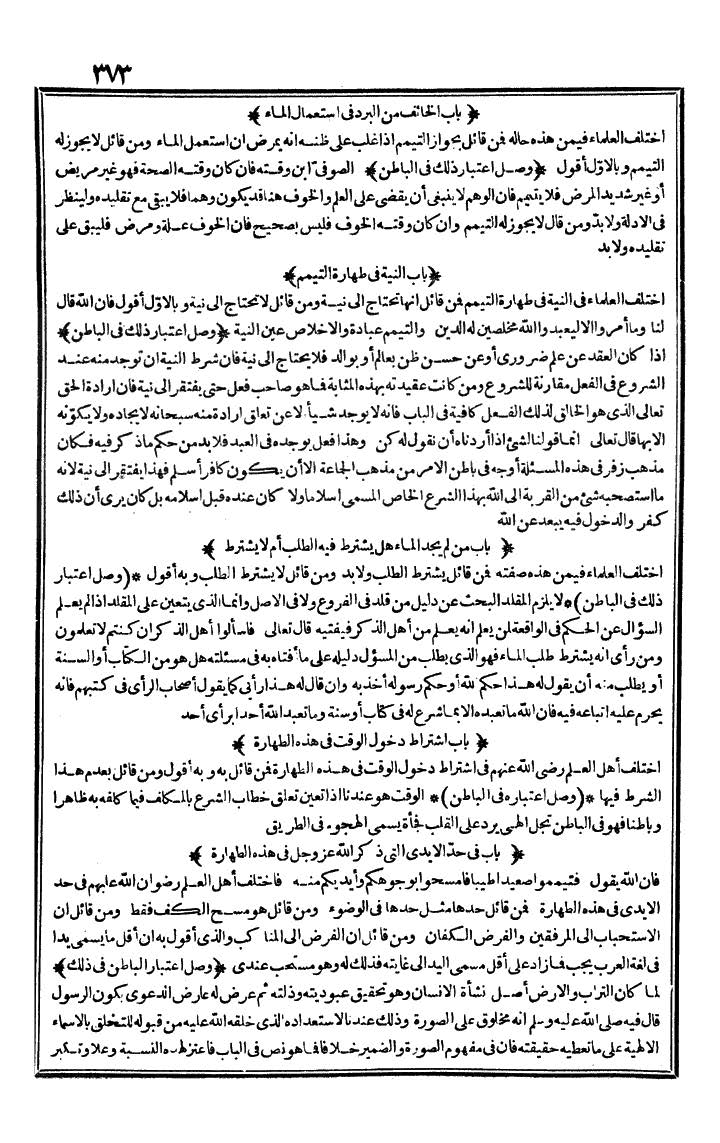 ٣٧٣
﴿ باب الخائف من البرد فى استعمال الماء ﴾
اختلف العلماء فيمن هذه حاله فمن قائل بجواز التيمم اذا غلب على ظنه انه يمرض ان استعمل الماء ومن قائل لا يجوز له
التيمم وبالاول أقول ﴿وصل اعتبار ذلك فى الباطن﴾ الصوفى ابن وقته فان كان وقته الصحة فهو غير مريض
أو غير شديد المرض فلا يتيمم فان الوهم لا ينبغى أن يقضى على العلم والخوف هنا قد يكون وهما فلا يبقى مع تقليده ولينظر
فى الادلة ولابد ومن قال لا يجوز له التيمم وان كان وقته الخوف فليس بصحيح فان الخوف علة ومرض فليبق على
تقليده ولابد
﴿باب النية فى طهارة التيمم﴾
اختلف العلماء فى النية فى طهارة التيمم فمن قائل انها تحتاج الى نية ومن قائل لا تحتاج الى نية وبالاول أقول فان الله قال
لنا وما أمروا الا ليعبدوا الله مخلصين له الدين والتيمم عبادة والاخلاص عين النية ﴿وصل اعتبار ذلك فى الباطن﴾
اذا كان العقد عن علم ضرورى أو عن حسن ظن بعالم أو بوالد فلا يحتاج الى نية فان شرط النية ان توجد منه عند
الشروع فى الفعل مقارنة للشروع ومن كانت عقيدته بهذه المثابة فما هو صاحب فعل حتى يفتقر الى نية فان ارادة الحق
تعالى الذى هو الخالق لذلك الفعل كافية فى الباب فانه لا يوجد شيأ الا عن تعلق ارادة منه سبحانه لايجاده ولا يكوّنه
الا بها قال تعالى انما قولنا لشئ اذا أردناه أن نقول له كن وهذا فعل يوجده فى العبد فلابد من حكم ما ذكر فيه فكان
مذهب زفر فى هذه المسئلة أوجه فى باطن الامر من مذهب الجماعة الا أن يكون كافر أسلم فهذا يفتقر الى نية لانه
ما استصحبه شئ من القربة الى الله بهذا الشرع الخاص المسمى اسلاما ولا كان عنده قبل اسلامه بل كان يرى أن ذلك
كفر والدخول فيه يبعد عن الله
﴿ باب من لم يجد الماء هل يشترط فيه الطلب أم لا يشترط ﴾
اختلف العلماء فيمن هذه صفته فمن قائل يشترط الطلب ولابد ومن قائل لا يشترط الطلب وبه أقول *(وصل اعتبار
ذلك فى الباطن)* لا يلزم المقلد البحث عن دليل من قلده فى الفروع ولا فى الاصل وانما الذى يتعين على المقلد اذا لم يعلم
السؤال عن الحكم فى الواقعة لمن يعلم انه يعلم من أهل الذكر فيفتيه قال تعالى فاسألوا أهل الذكر ان كنتم لا تعلمون
ومن رأى انه يشترط طلب الماء فهو الذى يطلب من المسؤل دليله على ما أفتاه به فى مسئلته هل هو من الكتاب أو السنة
أو يطلب منه أن يقول له هذا حكم الله أو حكم رسوله أخذ به وان قال له هذا رأيى كما يقول أصحاب الرأى فى كتبهم فانه
يحرم عليه اتباعه فيه فان الله ما تعبده الا بما شرع له فى كتاب أو سنة وما تعبد الله أحدا برأى أحد
﴿ باب اشتراط دخول الوقت فى هذه الطهارة ﴾
اختلف أهل العلم رضى الله عنهم فى اشتراط دخول الوقت فى هذه الطهارة فمن قائل به وبه أقول ومن قائل بعدم هذا
الشرط فيها *(وصل اعتباره فى الباطن)* الوقت هو عندنا اذا تعين تعلق خطاب الشرع بالمكلف فيما كلفه به ظاهرا
وباطنا فهو فى الباطن تجل الهى يرد على القلب فجأة يسمى الهجوم فى الطريق
﴿ باب فى حد الايدى التى ذكر الله عز وجل فى هذه الطهارة ﴾
فان الله يقول فتيمموا صعيدا طيبا فامسحوا بوجوهكم وأيديكم منه فاختلف أهل العلم رضوان الله عليهم فى حد
الايدى فى هذه الطهارة فمن قائل حدها مثل حدها فى الوضوء ومن قائل هو مسح الكف فقط ومن قائل ان
الاستحباب الى المرفقين والفرض الكفان ومن قائل ان الفرض الى المناكب والذى أقول به ان أقل ما يسمى يدا
فى لغة العرب يجب فما زاد على أقل مسمى اليد الى غايته فذلك له وهو مستحب عندى ﴿وصل اعتبار الباطن فى ذلك﴾
لما كان التراب والارض أصل نشأة الانسان وهو تحقيق عبوديته وذلته ثم عرض له عارض الدعوى بكون الرسول
قال فيه صلى الله عليه وسلم انه مخلوق على الصورة وذلك عندنا لاستعداده الذى خلقه الله عليه من قبوله للتخلق بالاسماء
الالهية على ما تعطيه حقيقته فان فى مفهوم الصورة والضمير خلافا فما هو نص فى الباب فاعتز لهذه النسبة وعلا وتكبر